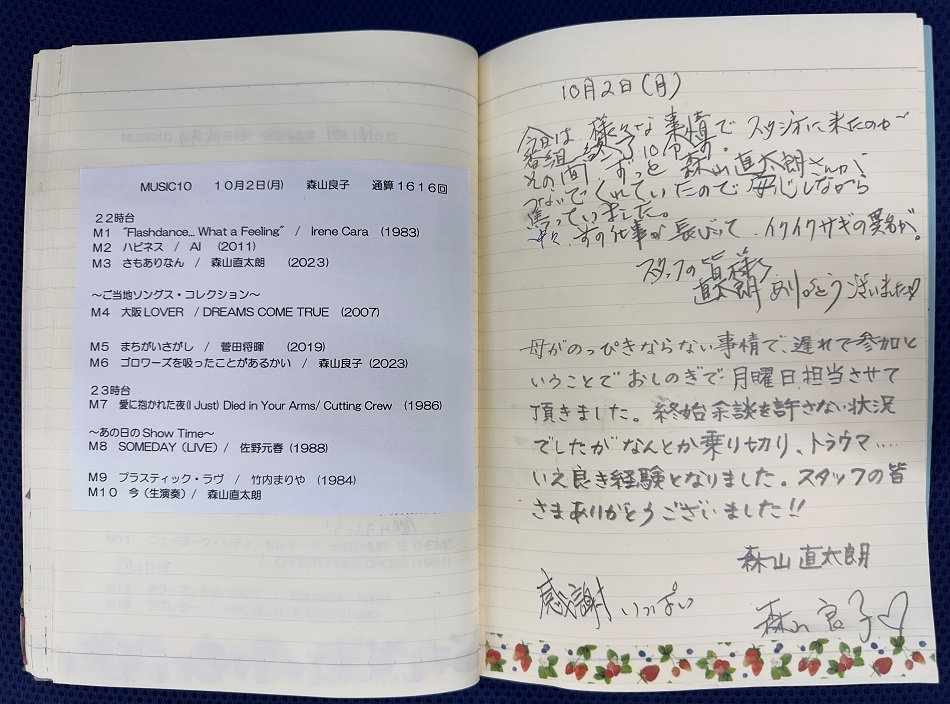 MUSIC10 10月2日(月) 森山良子 通算1616回
22時台
M1 "Flashdance... What a Feeling" / Irene Cara (1983)
M2 ハピネス / AI (2011)
M3 さもありなん / 森山直太朗 (2023)
～ご当地ソングス・コレクション～
M4 大阪LOVER / DREAMS COME TRUE (2007)
M5 まちがいさがし / 菅田将暉 (2019)
M6 ゴロワーズを吸ったことがあるかい / 森山良子(2023)
23時台
M7 愛に抱かれた夜(I Just) Died in Your Arms/ Cutting Crew (1986)
～あの日のShow Time～
M8 SOMEDAY (LIVE) / 佐野元春(1988)
M9 プラスティック・ラヴ / 竹内まりや (1984)
M10 今(生演奏) / 森山直太朗
10月2日(月)
今日は様々な事情でスタジオに来たのが
番組終了10分前。
その間、ずっと森山直太朗さんが
つないでくれていたので 感じしながら
焦っていました。
の仕事が長びいて、イクイクサギの異名が。
スタッフの皆様
直太朗 ありがとうございました♡
母がのっぴきならない事情で、遅れて参加と
いうことでおしのぎで月曜日担当させて
頂きました。終始余談を許さない状況
でしたがなんとか乗り切り、トラウマ‥‥
いえ良き経験となりました。スタッフの皆
さまありがとうございました!!
森山直太朗
感謝 いっぱい
森山良子♡